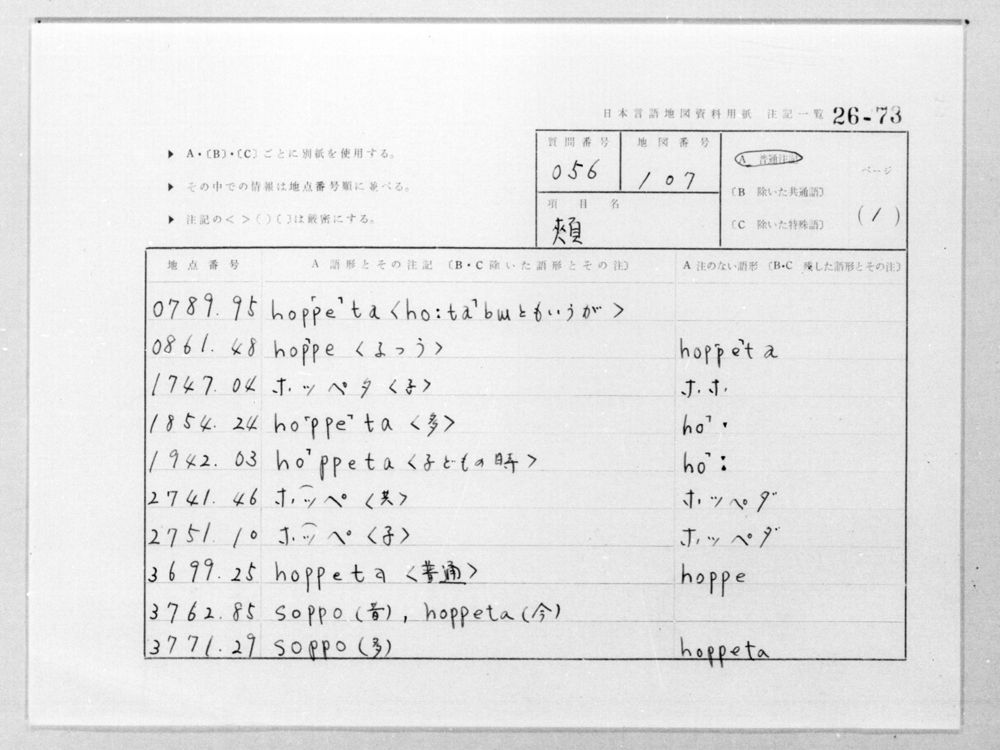 日本言語地図資料用紙 注記一覧 26-73
▶ A・〔B〕・〔C〕ごとに別紙を使用する。
▶ その中での情報は地点番号順に並べる。
▶ 注記の＜ ＞（ ）〔 〕は厳密にする。
質問番号 056
地図番号 107
項目名 頰
A 普通注記
〔B 除いた共通語〕
〔C 除いた特殊語〕
ページ (1)
地点番号 A 語形とその注記 〔B・C 除いた語形とその注〕 A 注のない語形 〔B・C 残した語形とその注〕
0789.95 ho⌈ppe⌉ta <ho:ta⌉bɯともいうが>
0861.48 ho⌈ppe <ふつう> ho⌈ppe⌉ta
1747.04 ホッペタ <子> ホホ
1854.24 ho⌈ppe⌉ta <多> ho⌉・
1942.03 ho⌉ppeta <子どもの時> ho⌉:
2741.46 ホッペ <共> ホッペダ
2751.10 ホッペ <子> ホッペダ
3699.25 hoppeta <普通> hoppe
3762.85 soppo (昔), hoppeta (今)
3771.29 soppo (多) hoppeta